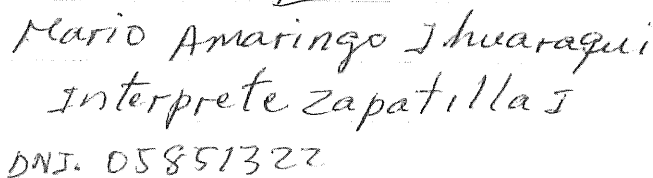 Mario Amaringo Ihuaraqui
Interprete Zapatilla I
DNI. 05851322